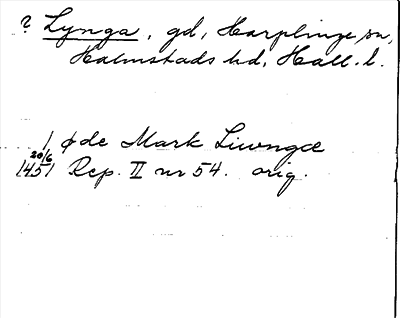 ? Lynga, gd, Harplinge sn,
Halmstads hd, Hall. l.
1 øde Mark Liwngæ
20/6
1451 Rep. II nr 54. orig.